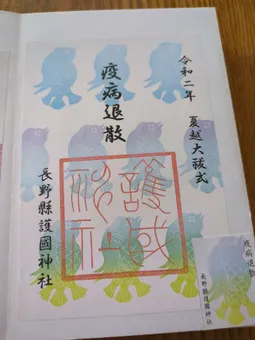 令和二年　夏越大祓式
疫病退散
護國
神社
長野縣護國神社
疫病退散
長野縣護國神社